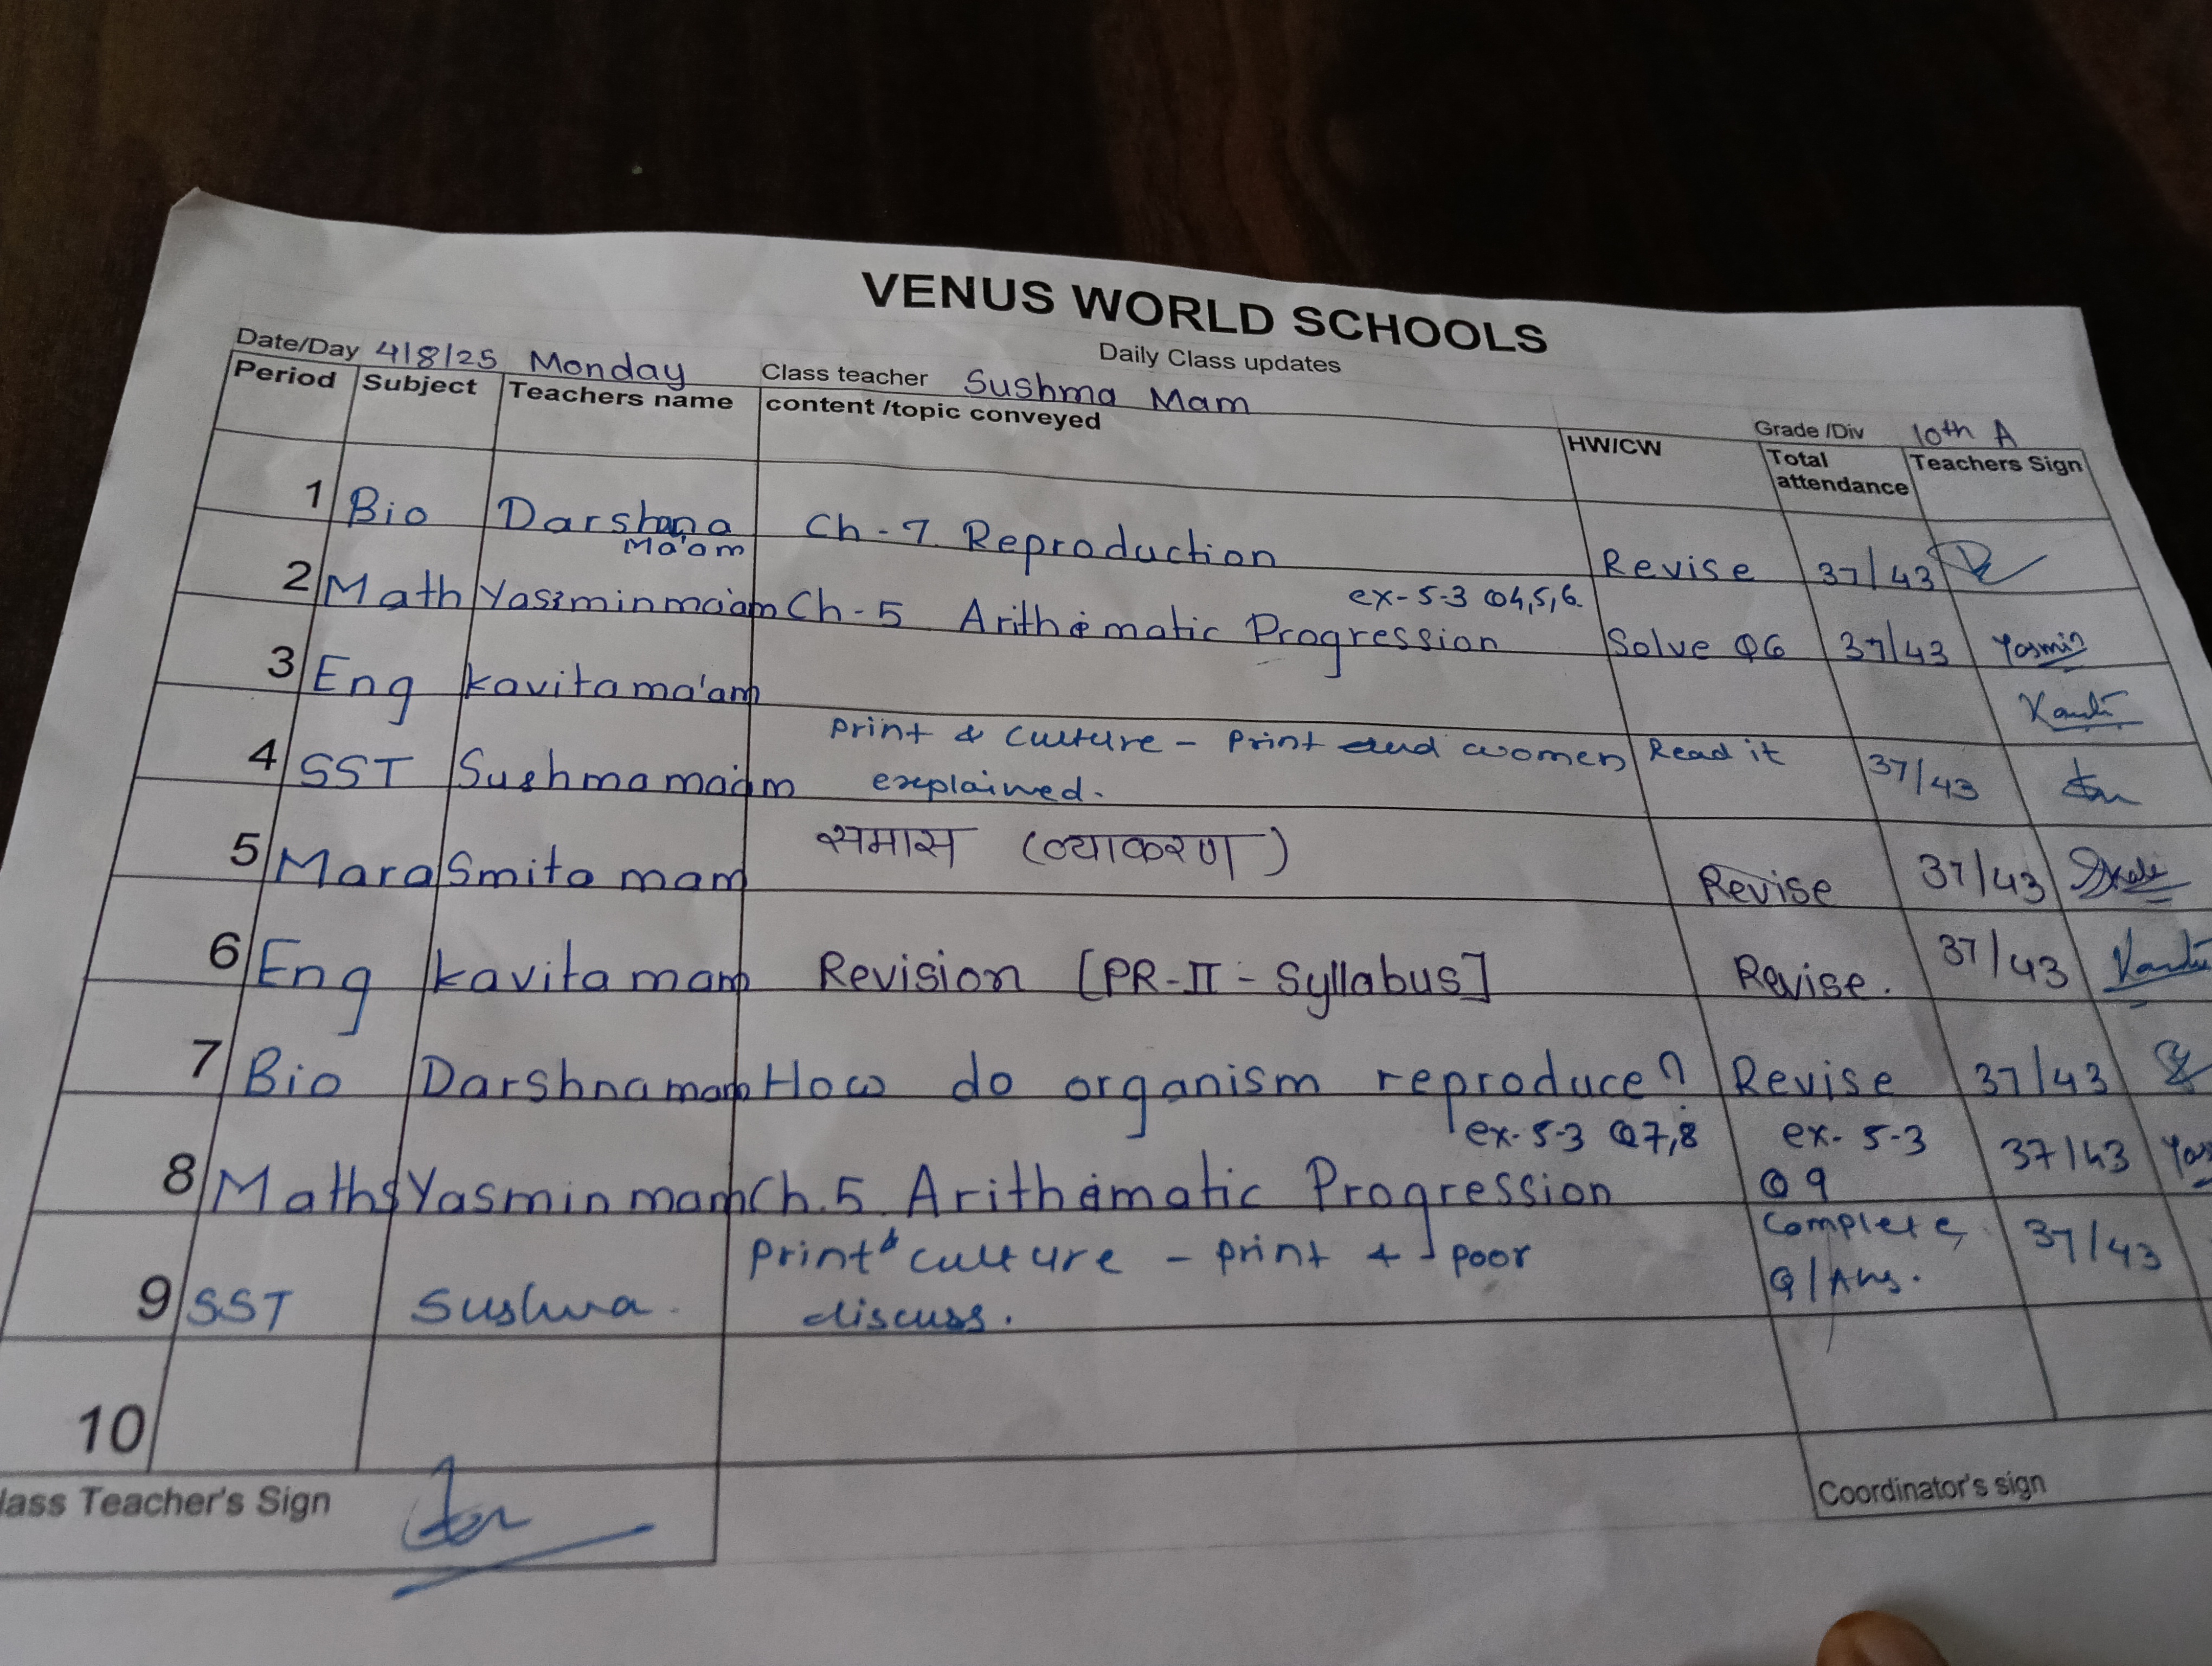 VENUS WORLD SCHOOLS
Daily Class updates
Date/Day 4/8/25 Monday Class teacher Sushma Mam Grade /Div 10th A
Period Subject Teachers name content /topic conveyed HW/CW Total attendance Teachers Sign
1 Bio Darshana Ma'am Ch - 7 Reproduction Revise 37/43
ex- 5-3 Q4,5,6.
2 Math Yasimin ma'am Ch - 5 Arithematic Progression Solve Q6 37/43 Yasmin
3 Eng kavita ma'am
print & culture - Print and women Read it
4 SST Sushma ma'am explained. 37/43
5 Mara Smita mam समास (व्याकरण) Revise 37/43
6 Eng kavita mam Revision [PR-II - Syllabus] Revise. 37/43
7 Bio Darshna mam How do organism reproduce? Revise 37/43
ex- 5-3 Q7,8 ex- 5-3
8 Maths Yasmin mam Ch. 5 Arithematic Progression Q9 37/43 Yas
print & culture - print & poor Complete
9 SST Sushma. discuss. Q/Ans. 37/43
10
lass Teacher's Sign
Coordinator's sign